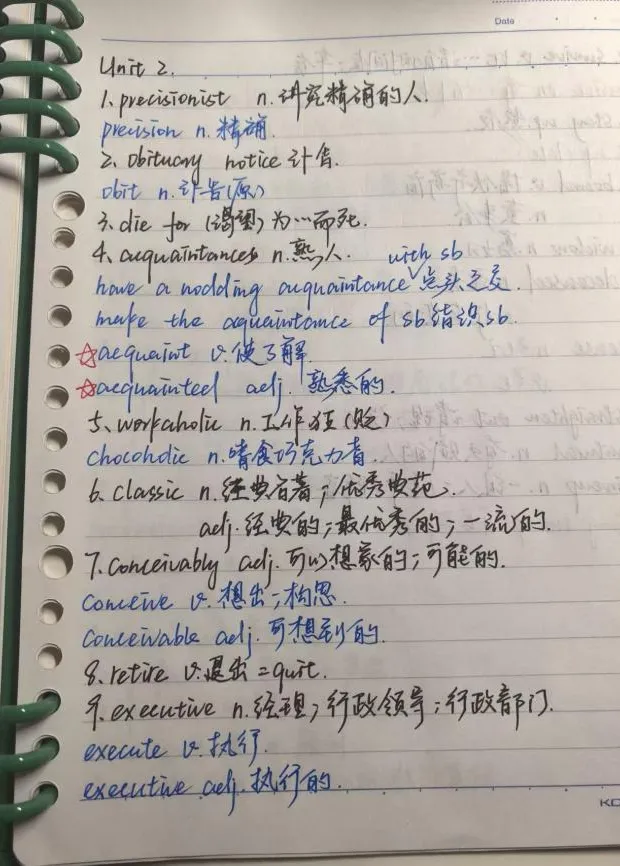 Date
Unit 2.
1. precisionist n. 讲究精确的人.
precision n. 精确.
2. obituary notice 讣告.
obit n. 讣告(原)
3. die for (渴望) 为…而死.
4. acquaintances n. 熟人.
have a nodding acquaintance with sb 点头之交.
make the acquaintance of sb 结识sb.
☆acquaint v. 使了解.
☆acquainted adj. 熟悉的.
5. workaholic n. 工作狂(贬)
chocoholic n. 嗜食巧克力者.
6. classic n. 经典名著; 优秀典范.
adj. 经典的; 最优秀的; 一流的.
7. conceivably adj. 可以想象的; 可能的.
conceive v. 想出; 构思.
conceivable adj. 可想到的.
8. retire v. 退出 = quit.
9. executive n. 经理; 行政领导; 行政部门.
execute v. 执行.
executive adj. 执行的.